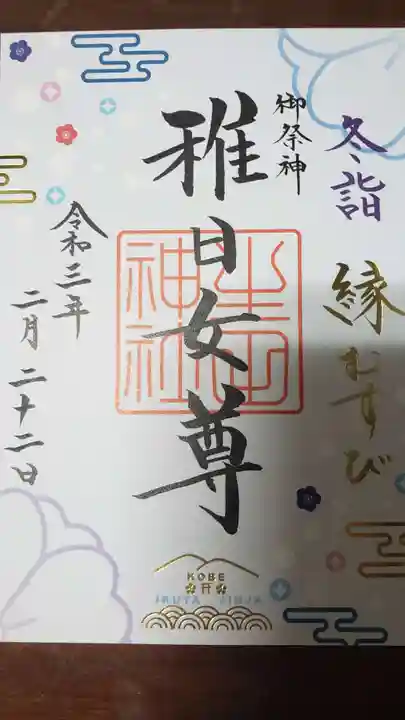 冬詣
縁むすび
御祭神
稚日女尊
生田
神社
令和三年
二月二十二日
KOBE
IKUTA JINJA